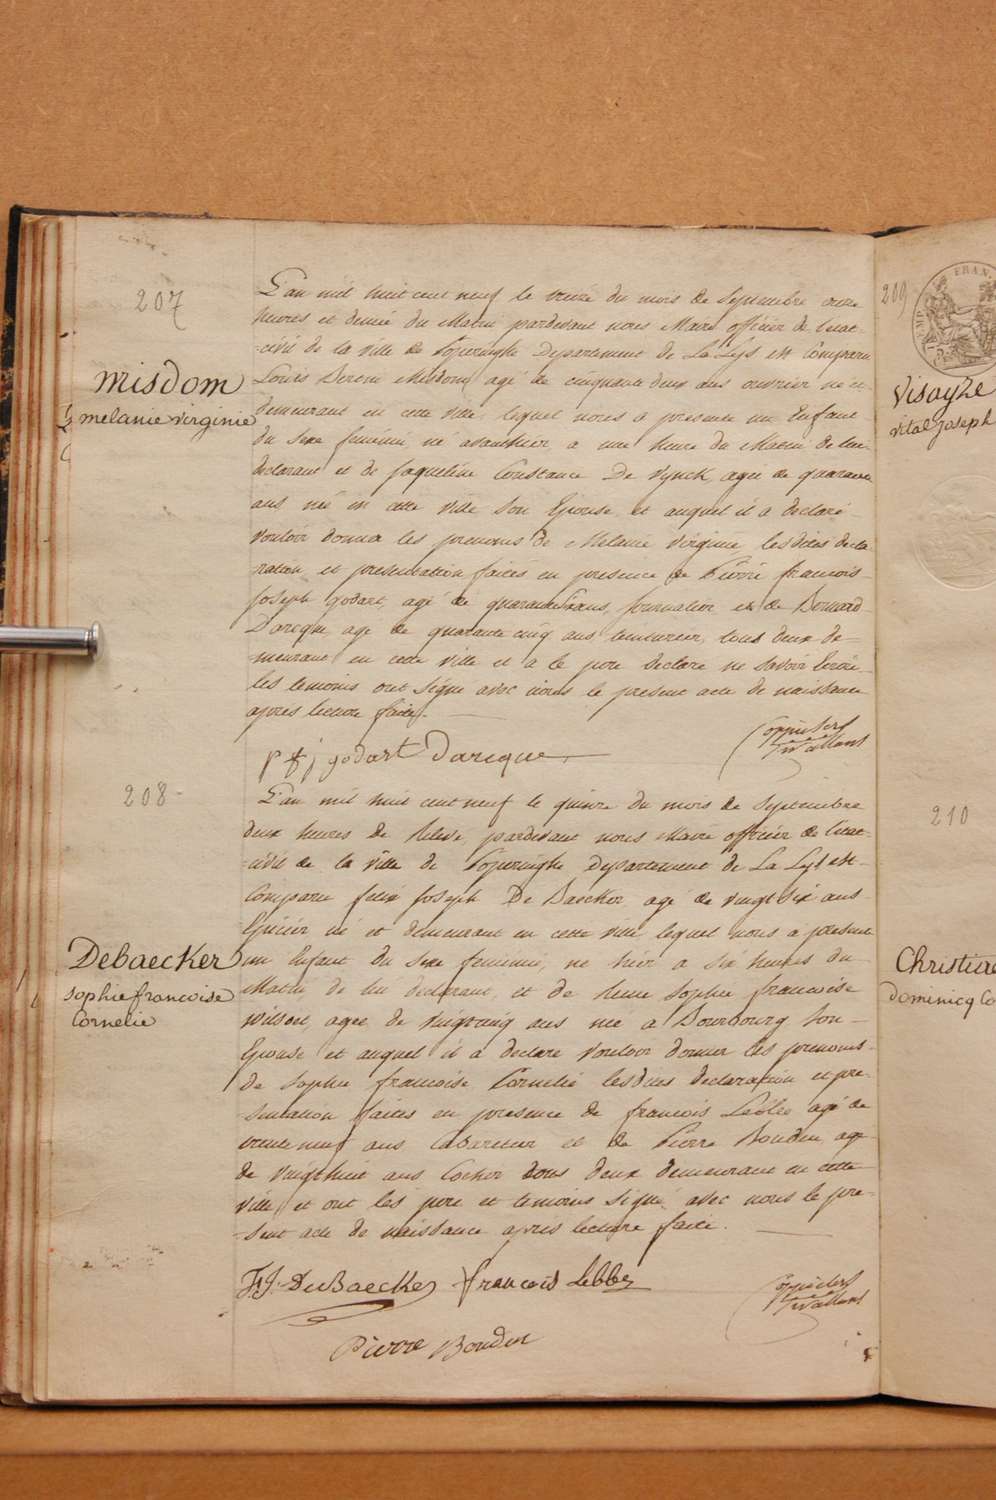 207
L'an mil huit cent neuf le treize du mois de Septembre onze
heures et demie du Matin pardevant nous Maire officier de l'etat
-civil de la ville de Poperinghe Departement de La Lys est Comparu
Misdom
melanie virginie
Louis Misdom agé de cinquante deux ans ouvrier né et
demeurant en cette ville, lequel nous a presenté un Enfant
du Sexe feminin né avanthier a une heure du Matin de lui
declarant et de Jaqueline Constance De Vynck agée de quarante
ans née en cette ville Son Epouse et auquel il a declaré
Vouloir donner les prenoms de Melanie Virginie, lesdites decla
ration et presentation faites en presence de Pierre francois
Joseph Godart, agé de quarante ans, Journalier et de Bernard
Darcque, agé de quarante cinq ans, teinturier, tous deux de-
-meurant en cette ville et a le pere declaré ne Savoir Ecrire
les temoins ont Signé avec nous le present acte de naissance
apres lecture faite.
p f j godart Darcque
208
L'an mil huit cent neuf le quinze du mois de Septembre
deux heures de relevé, pardevant nous Maire officier de l'etat
-civil de la ville de Poperinghe Departement de La Lys est
Comparu felix Joseph De Baecker agé de vingt six ans
Epicier né et demeurant en cette ville lequel nous a presenté
Debaecker
sophie francoise
Cornelie
un Enfant du Sexe feminin, né hier a Six heures du
Matin de lui declarant, et de Sophie francoise
Wilsoet, agée de Vingtcinq ans née a Bourbourg Son
Epouse et auquel il a declaré Vouloir donner les prenoms
de Sophie francoise Cornelie lesdites declaration et pre-
-sentation faites en presence de francois Lebbe agé de
trente neuf ans Cabaretier et de Pierre Boudin agé
de Vingthuit ans Cocher tous deux demeurant en cette
ville et ont les pere et temoins signé avec nous le pre-
-sent acte de naissance apres lecture faite.
F.J. DeBaecker francois Lebbe
Pierre Boudin
209
Visayze
vital Joseph
210